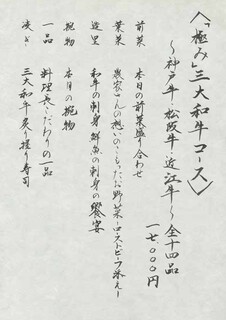 〈「極み」三大和牛コース〉
〜神戸牛・松阪牛・近江牛〜 全十四品
一七、000円
前菜 本日の前菜盛り合わせ
葉菜 農家さんの想いのこもったお野菜〜ローストビーフ添え〜
造里 和牛の刺身 鮮魚の刺身の饗宴
椀物 本日の椀物
一品 料理長こだわりの一品
凌ぎ 三大和牛炙り握り寿司